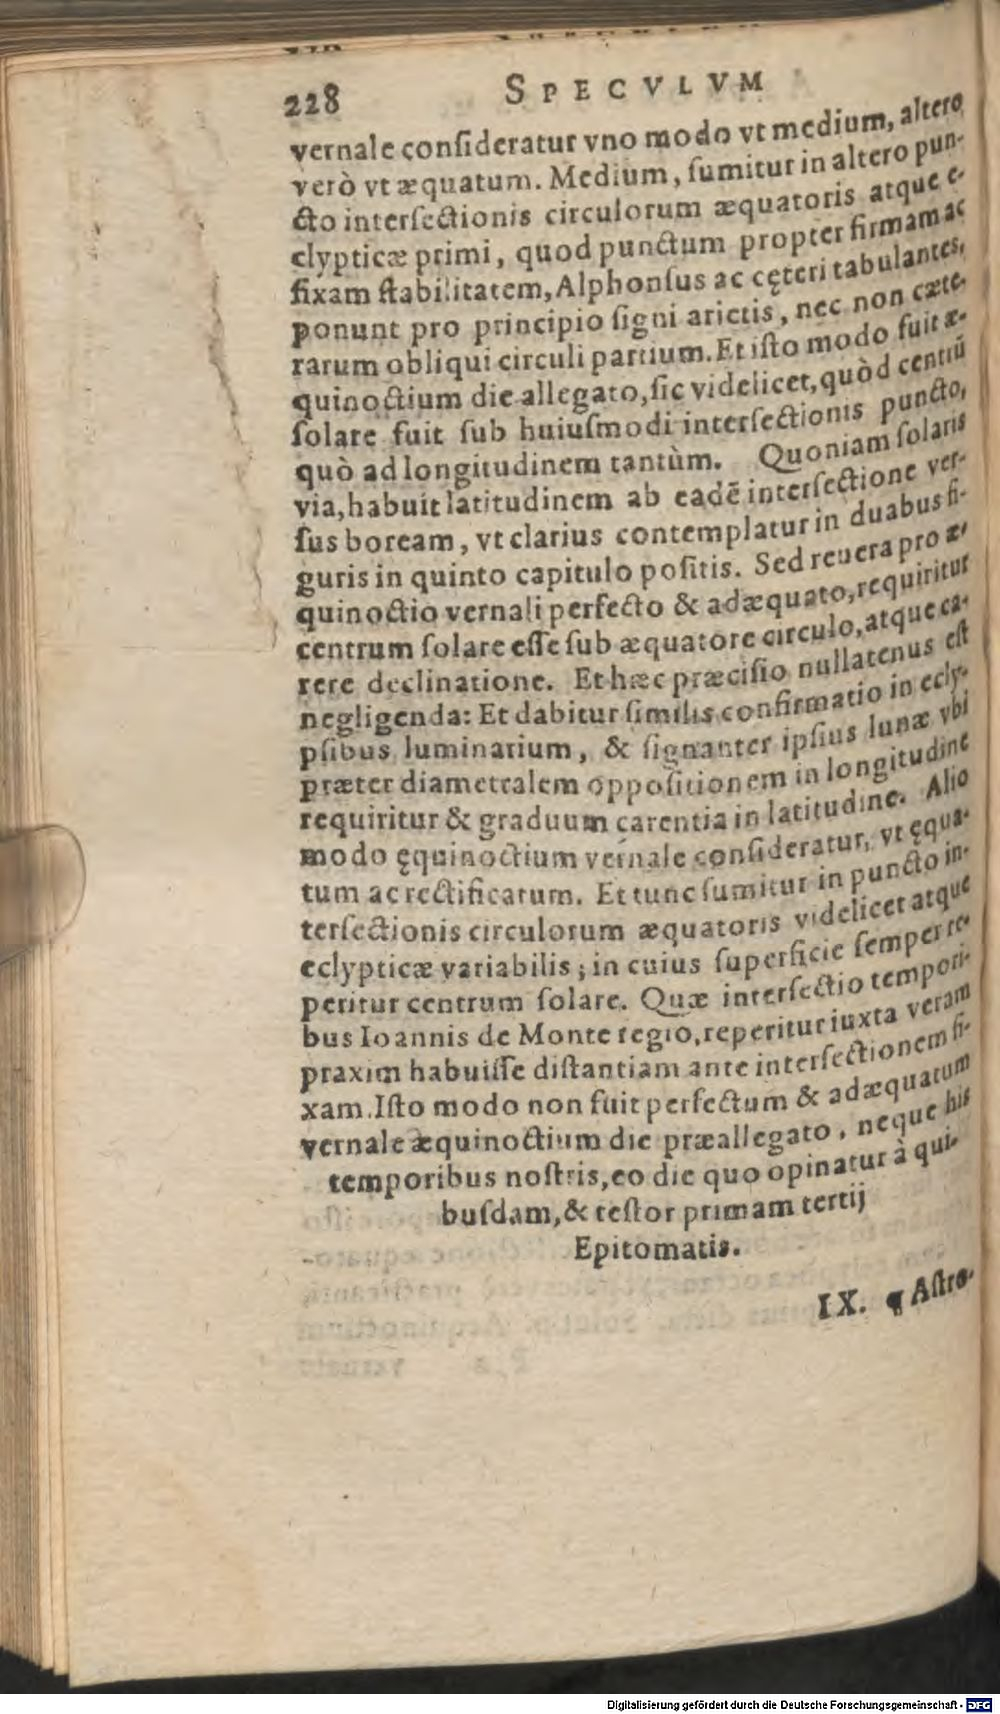 228 SPECVLVM
vernale conſideratur vno modo vt medium, altero
verò vt æquatum. Medium, ſumitur in altero pun-
cto interſectionis circulorum æquatoris atque e-
clypticæ primi, quod punctum propter firmam ac
fixam ſtabilitatem, Alphonſus ac cęteri tabulantes,
ponunt pro principio ſigni arietis, nec non cæte-
rarum obliqui circuli partium. Et iſto modo fuit æ-
quinoctium die allegato, ſic videlicet, quòd centrū
ſolare fuit ſub huiuſmodi interſectionis puncto,
quò ad longitudinem tantùm. Quoniam ſolaris
via, habuit latitudinem ab eadē interſectione ver-
ſus boream, vt clarius contemplatur in duabus fi-
guris in quinto capitulo poſitis. Sed reuera pro æ-
quinoctio vernali perfecto & adæquato, requiritur
centrum ſolare eſſe ſub æquatore circulo, atque ca-
rere declinatione. Et hæc præciſio nullatenus eſt
negligenda: Et dabitur ſimilis confirmatio in ecly-
pſibus luminarium, & ſignanter ipſius lunæ vbi
præter diametralem oppoſitionem in longitudine
requiritur & graduum carentia in latitudine. Alio
modo ęquinoctium vernale conſideratur, vt ęqua-
tum ac rectificatum. Et tunc ſumitur in puncto in-
terſectionis circulorum æquatoris videlicet atque
eclypticæ variabilis; in cuius ſuperficie ſemper re-
peritur centrum ſolare. Quæ interſectio tempori-
bus Ioannis de Monte regio, reperitur iuxta veram
praxim habuiſſe diſtantiam ante interſectionem fi-
xam. Iſto modo non fuit perfectum & adæquatum
vernale æquinoctium die præallegato, neque his
temporibus noſtris, eo die quo opinatur à qui-
buſdam, & teſtor primam tertij
Epitomatis.
IX. ¶ Aſtro-
Digitalisierung gefördert durch die Deutsche Forschungsgemeinschaft - DFG